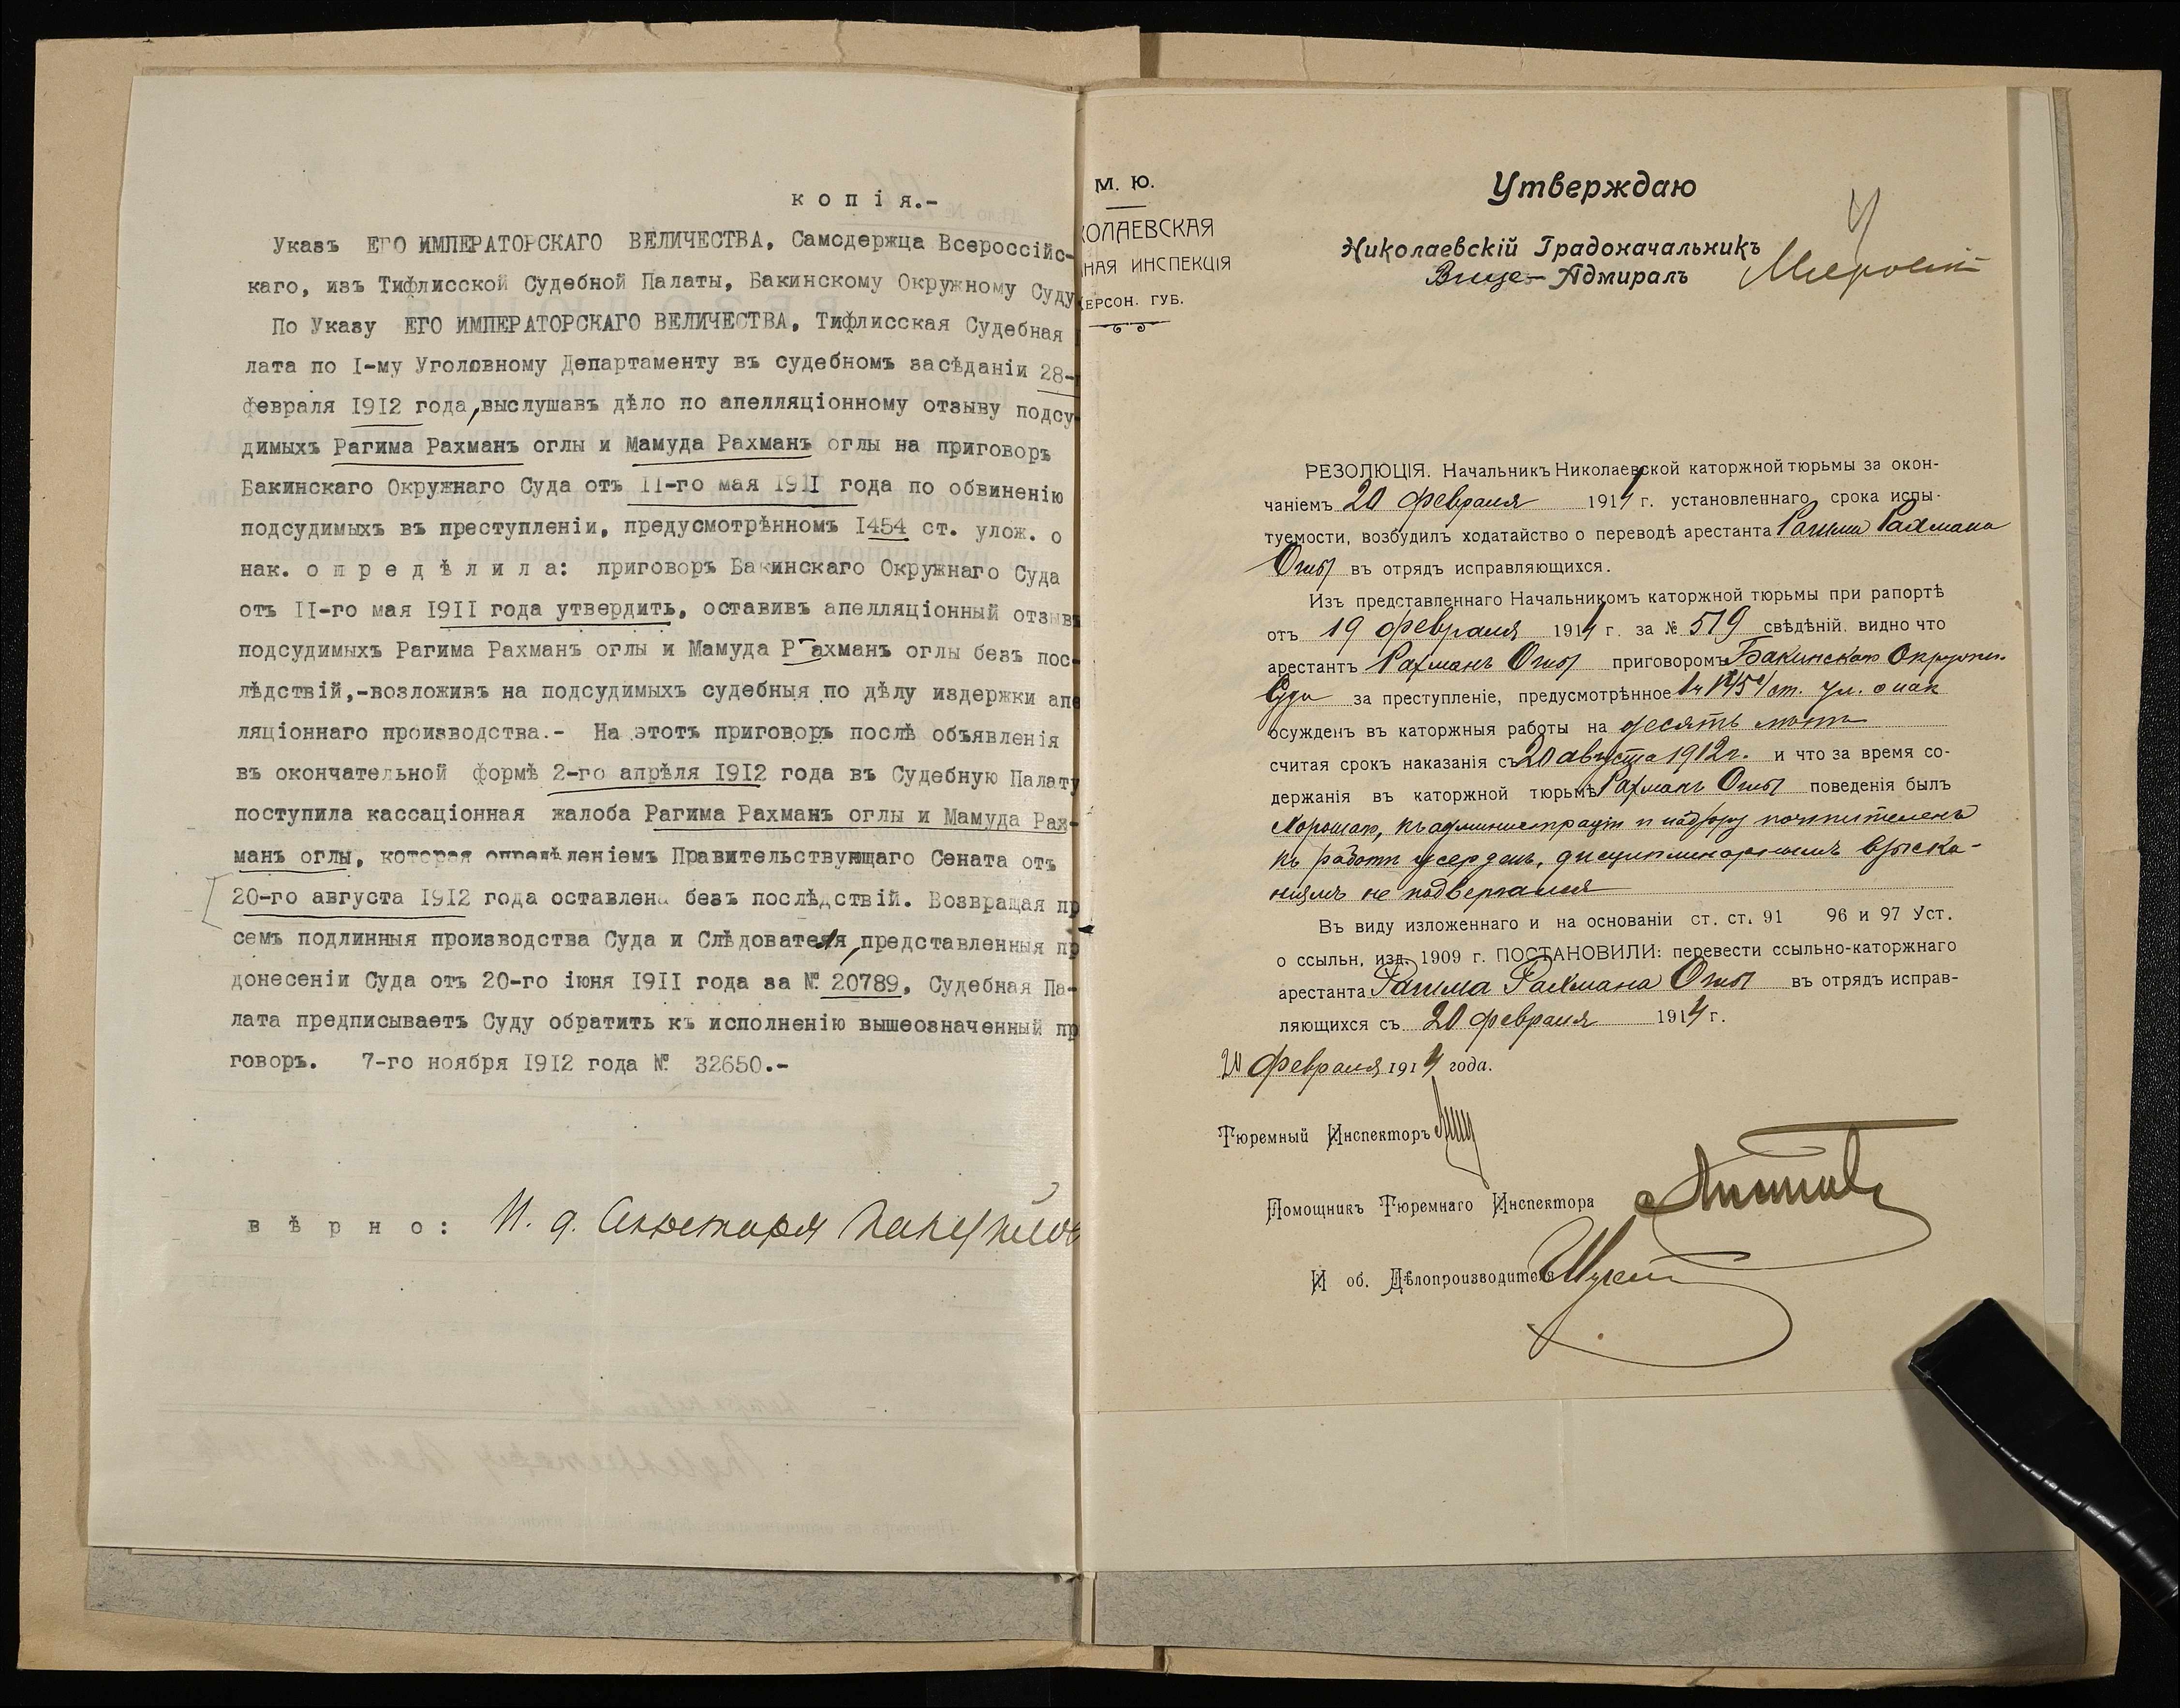 копія.-
Указъ ЕГО ИМПЕРАТОРСКАГО ВЕЛИЧЕСТВА, Самодержца Всероссійс-
каго, изъ Тифлисской Судебной Палаты, Бакинскому Окружному Суду
По Указу ЕГО ИМПЕРАТОРСКАГО ВЕЛИЧЕСТВА, Тифлисская Судебная
лата по I-му Уголовному Департаменту въ судебномъ засѣданіи 28-
февраля 1912 года, выслушавъ дѣло по апелляціонному отзыву подсу
димыхъ Рагима Рахманъ оглы и Мамуда Рахманъ оглы на приговоръ
Бакинскаго Окружнаго Суда отъ II-го мая 1911 года по обвиненію
подсудимыхъ въ преступленіи, предусмотрѣнномъ I454 ст. улож. о
нак. о п р е д ѣ л и л а: приговоръ Бакинскаго Окружнаго Суда
отъ II-го мая I9II года утвердить, оставивъ апелляціонный отзывъ
подсудимыхъ Рагима Рахманъ оглы и Мамуда Р ахманъ оглы безъ пос-
лѣдствій,-возложивъ на подсудимыхъ судебныя по дѣлу издержки апе
ляціоннаго производства.- На этотъ приговоръ послѣ объявленія
въ окончательной формѣ 2-го апрѣля I9I2 года въ Судебную Палату
поступила кассаціонная жалоба Рагима Рахманъ оглы и Мамуда Рах-
манъ оглы, которая опредѣленіемъ Правительствующаго Сената отъ
20-го августа I9I2 года оставлена безъ послѣдствій. Возвращая пр
семъ подлинныя производства Суда и Слѣдователя, представленныя пр
донесеніи Суда отъ 20-го іюня I9II года за № 20789, Судебная Па-
лата предписываетъ Суду обратить къ исполненію вышеозначенный пр
говоръ. 7-го ноября I9I2 года № 32650.-
в ѣ р н о: И. д. Секретаря
М. Ю.
КОЛАЕВСКАЯ
НАЯ ИНСПЕКЦІЯ
ХЕРСОН. ГУБ.
Утверждаю
Николаевскій Градоначальникъ
Вице-Адмиралъ
РЕЗОЛЮЦІЯ. Начальникъ Николаевской каторжной тюрьмы за окон-
чаніемъ 20 февраля 1914 г. установленнаго срока испы-
туемости, возбудилъ ходатайство о переводѣ арестанта Рагима Рахмана
Оглы въ отрядъ исправляющихся.
Изъ представленнаго Начальникомъ каторжной тюрьмы при рапортѣ
отъ 19 февраля 1914 г. за № 519 свѣдѣній, видно что
арестантъ Рахманъ Оглы приговоромъ Бакинскаго Окружн.
Суда за преступленіе, предусмотрѣнное 1 ч 1454 ст. Ул. о нак
осужденъ въ каторжныя работы на десять лѣтъ
считая срокъ наказанія съ 20 августа 1912 г. и что за время со-
держанія въ каторжной тюрьмѣ Рахманъ Оглы поведенія былъ
хорошаго, къ администраціи и надзору почтителенъ
къ работѣ усерденъ, дисциплинарнымъ взыска-
ніямъ не подвергался
Въ виду изложеннаго и на основаніи ст. ст. 91 96 и 97 Уст.
о ссыльн, изд. 1909 г. ПОСТАНОВИЛИ: перевести ссыльно-каторжнаго
арестанта Рагима Рахмана Оглы въ отрядъ исправ-
ляющихся съ 20 февраля 1914 г.
20 февраля 1914 года.
Тюремный Инспекторъ
Помощникъ Тюремнаго Инспектора
И об. Дѣлопроизводителя